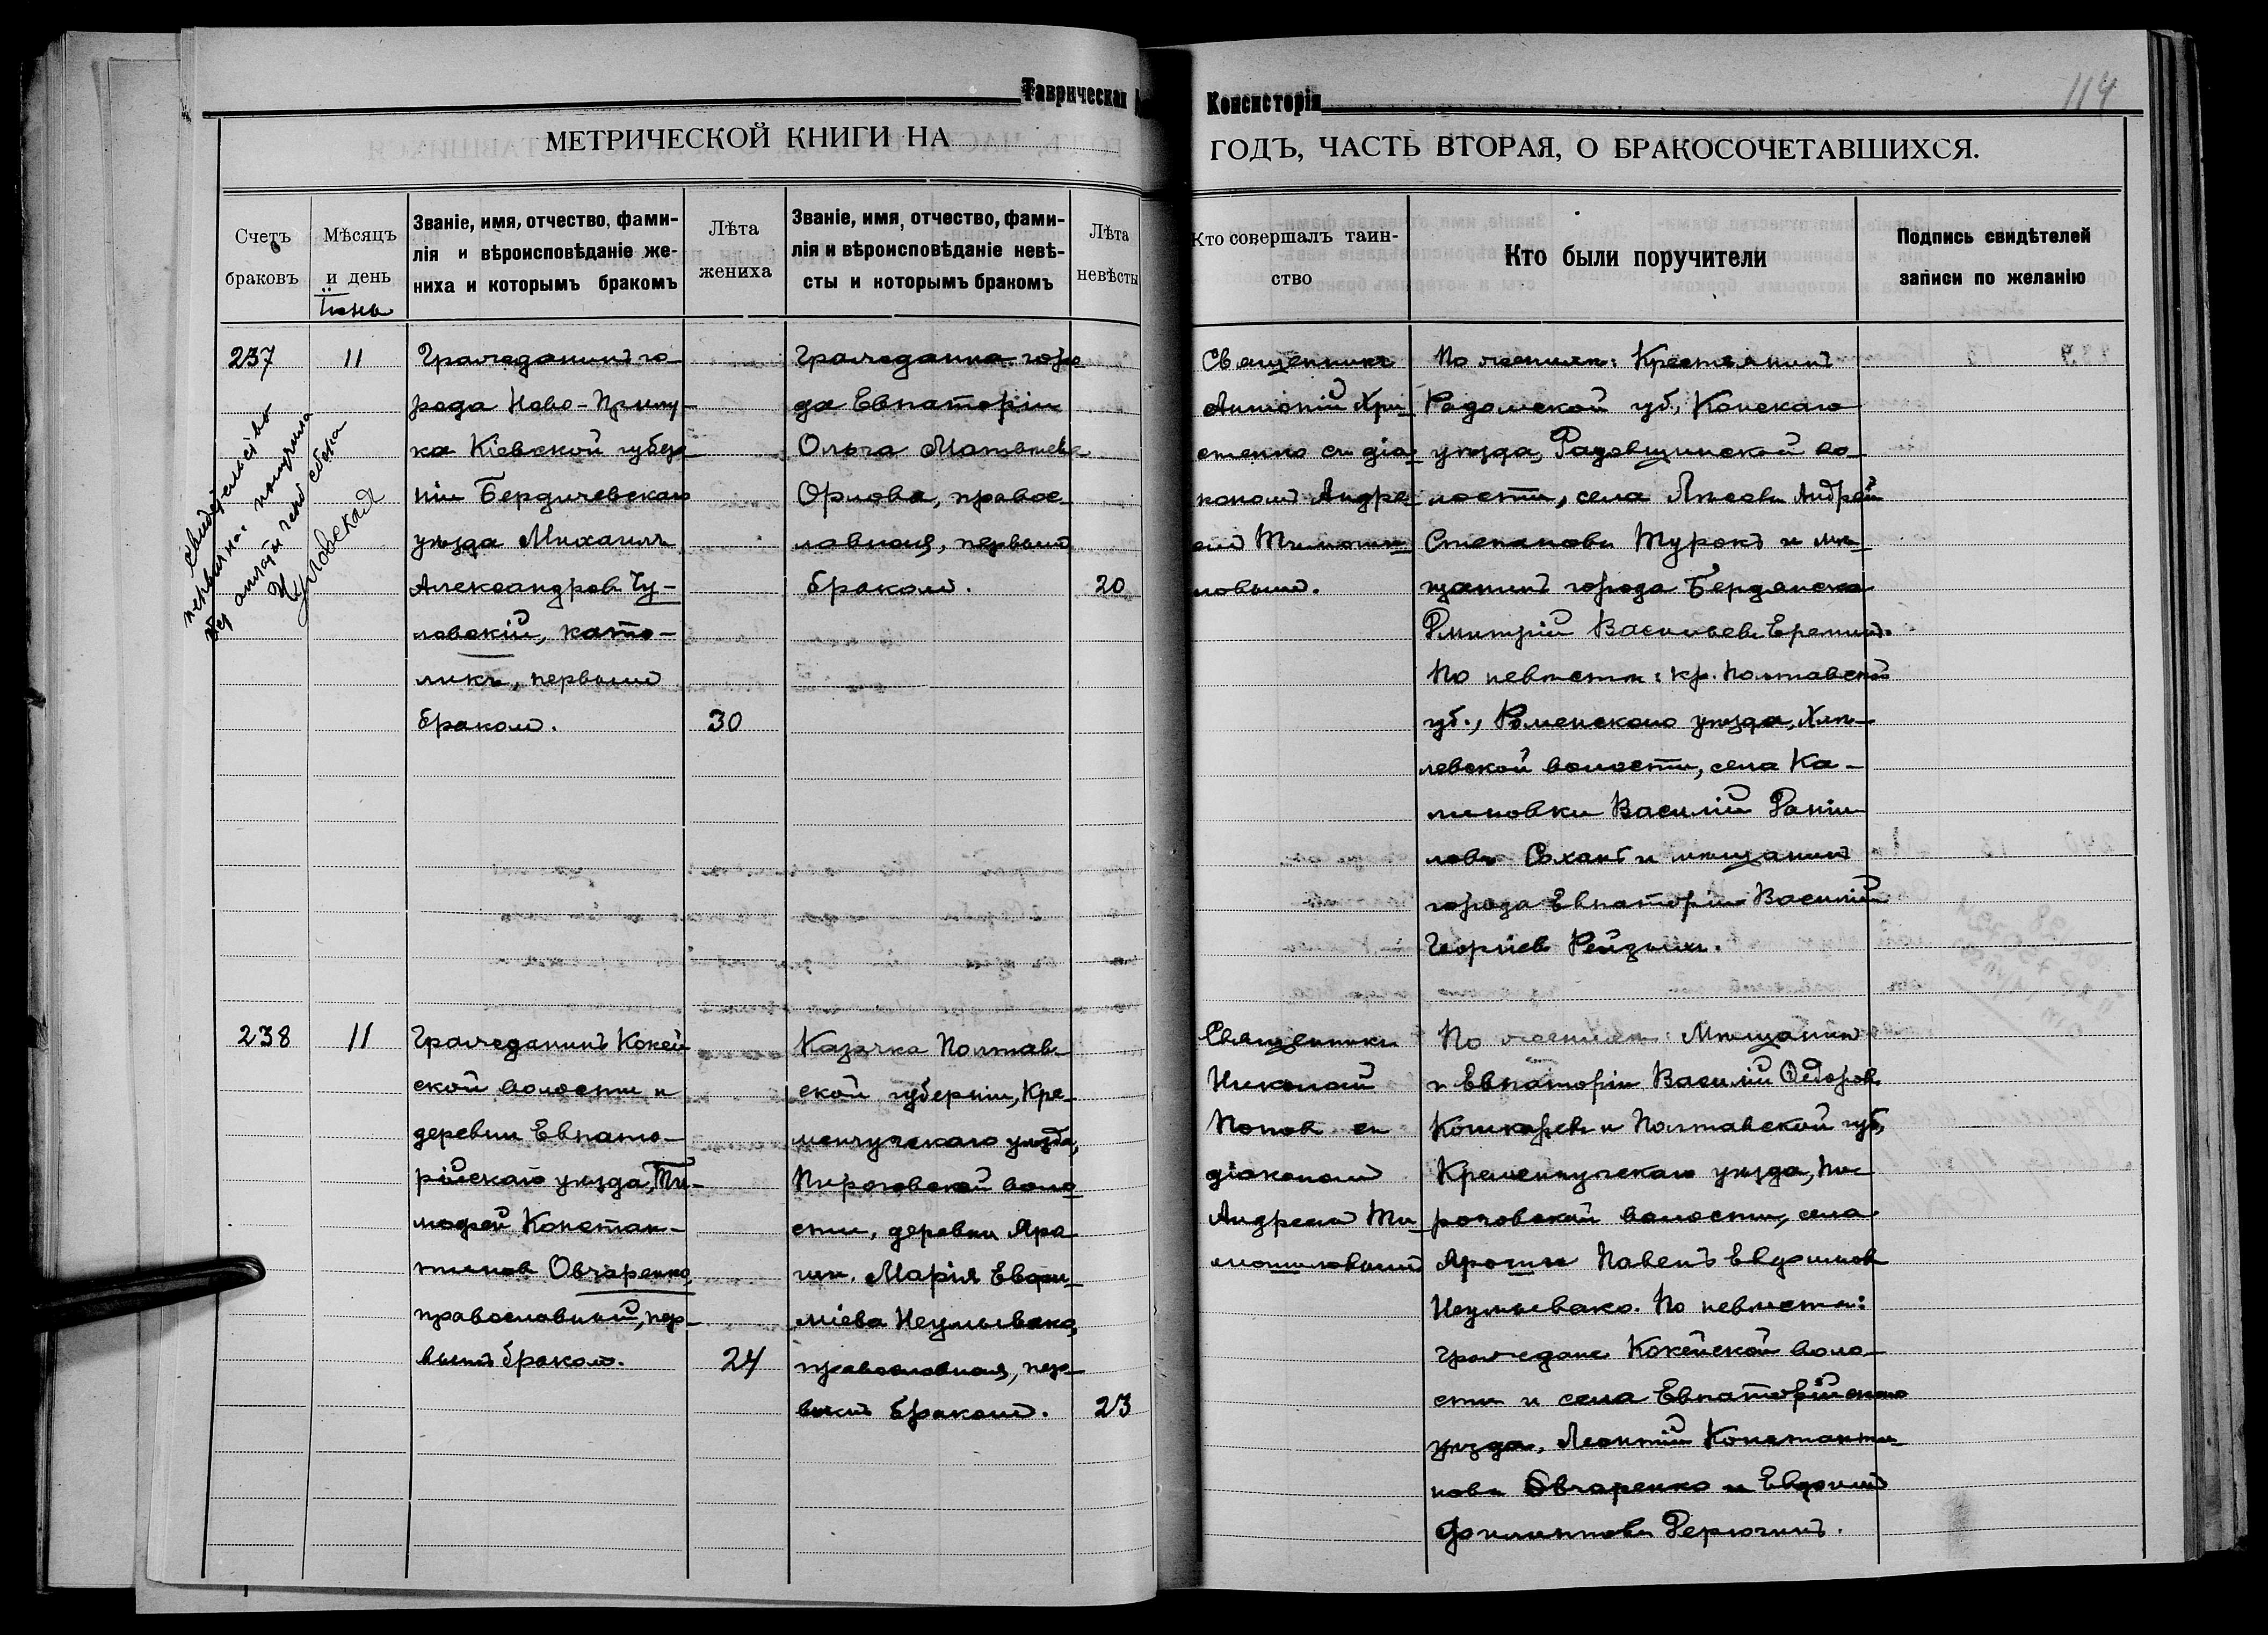 Таврическая
Консисторія
114
МЕТРИЧЕСКОЙ КНИГИ НА
ГОДЪ, ЧАСТЬ ВТОРАЯ, О БРАКОСОЧЕТАВШИХСЯ.
Счетъ
браковъ
Мѣсяцъ
и день
Званіе, имя, отчество, фами-
лія и вѣроисповѣданіе же-
ниха и которымъ бракомъ
Лѣта
жениха
Званіе, имя, отчество, фами-
лія и вѣроисповѣданіе невѣ-
сты и которымъ бракомъ
Лѣта
невѣсты
Кто совершалъ таин-
ство
Кто были поручители
Подпись свидѣтелей
записи по желанію
Іюнь
237
11
Гражданинъ го-
рода Ново-Прилу-
ка Кіевской губер
ніи Бердичевскаго
уѣзда Михаилъ
Александров Чу-
ловскій, като-
ликъ, первымъ
бракомъ.
30
Гражданка горо
да Евпаторіи
Ольга Матвѣева
Орлова, правос-
лавная, первымъ
бракомъ.
20
Священникъ
Антоній Хри-
стенко съ діа-
кономъ Андре-
емъ
новымъ.
По женихѣ: Крестьянинъ
Радомской губ., Конскаго
уѣзда, во-
лости, села Андрей
Степановъ Турокъ и мѣ-
щанинъ города Бердянска
Дмитрій Васильевъ
По невѣстѣ: кр. Полтавской
губ., Роменскаго уѣзда, Хмѣ-
левской волости, села Ка-
линовки Василій Дані-
ловъ и мѣщанинъ
города Евпаторіи Василій
Георгіев
свидѣтельство
получила
Чуловская
238
11
Гражданинъ Кокей
ской волости и
деревни Евпато-
рійскаго уѣзда, Ти-
мофей Констан-
тинов Овчаренко
православный, пер-
вымъ бракомъ.
24
Казачка Полтав
ской губерніи, Кре-
менчугскаго уѣзда,
Пироговской воло
сти, деревни Яро
шк. Марія Евфи-
міева Неумывако,
православная, пер-
вымъ бракомъ.
23
Священникъ
Николай
Попов съ
діакономъ
Андреем
По женихѣ: Мѣщанин
г. Евпаторіи Василій Ѳедоров
и Полтавской губ.
Кременчугскаго уѣзда, Пи-
роговской волости, села
Павелъ Евдокимов
Неумывако. По невѣстѣ:
граждане Кокейской воло-
сти и села Евпаторійскаго
уѣзда, Леонтій Константи-
новъ Овчаренко и Евдокимъ
Филипповъ Дерюгинъ.